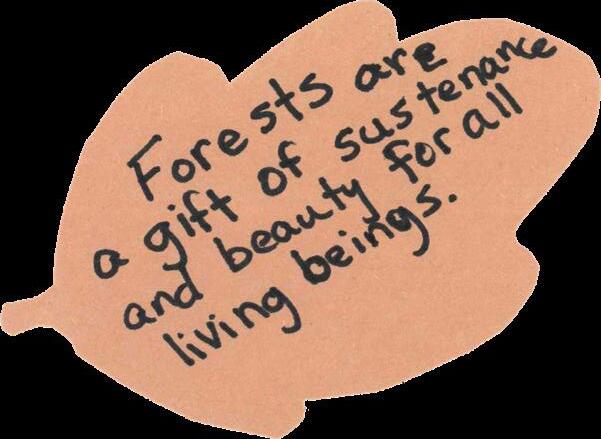 Forests are
a gift of sustenance
and beauty for all
living beings.